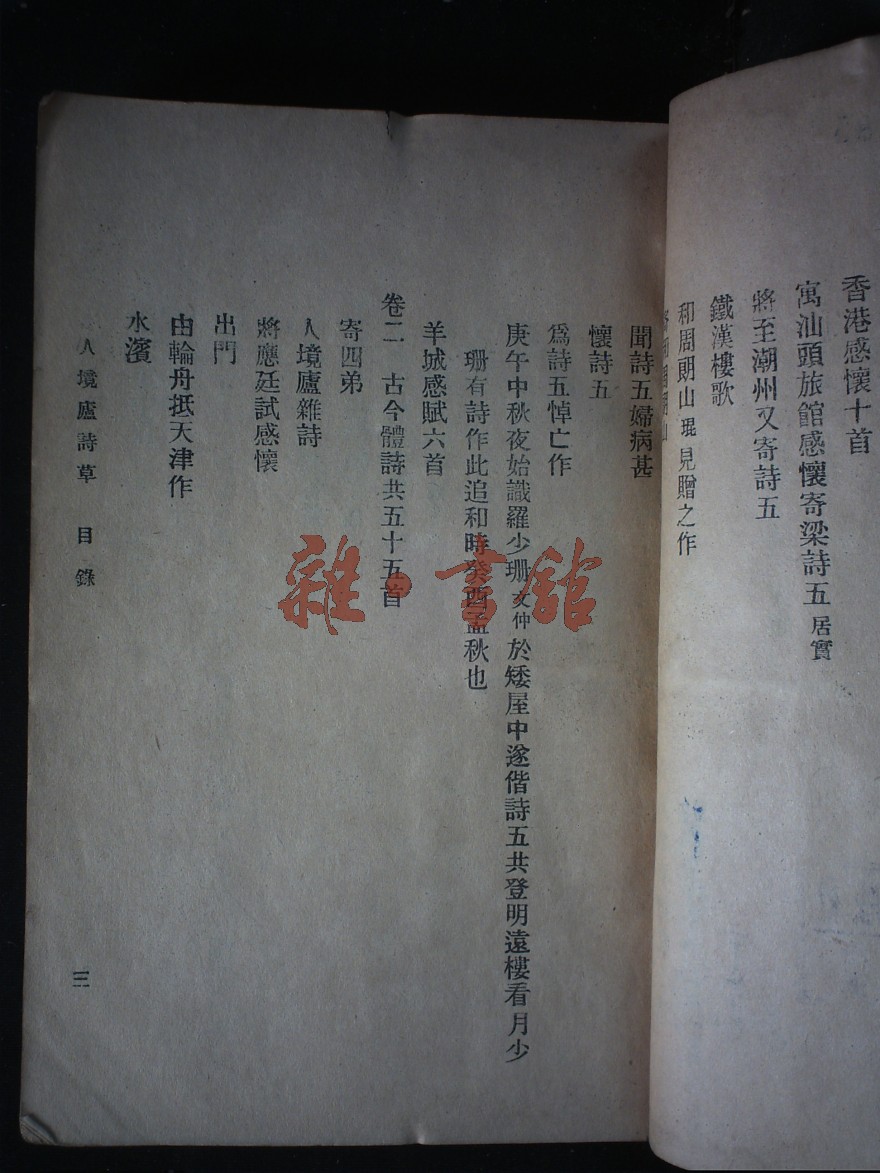 香港感懷十首
寓汕頭旅館感懷寄梁詩五居實
將至潮州又寄詩五
鐵漢樓歌
和周朗山琨見贈之作
聞詩五婦病甚
懷詩五
爲詩五悼亡作
庚午中秋夜始識羅少珊文仲於矮屋中遂偕詩五共登明遠樓看月少
珊有詩作此追和時癸酉孟秋也
羊城感賦六首
卷二 古今體詩共五十五首
寄四弟
人境廬雜詩
將應廷試感懷
出門
由輪舟抵天津作
水濱
人境廬詩草 目錄
三
雜·書館